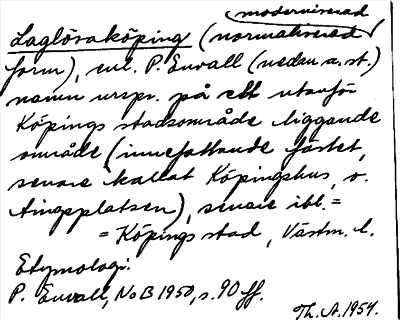 moderniserad
Laglösaköping (normaliserad
form), enl. P. Envall (nedan a. st.)
namn urspr. på ett utanför
Köpings stadsområde liggande
område (innefattande fästet,
senare kallat Köpingshus, o.
tingsplatsen), senare ibl. =
= Köpings stad, Västm. l.
Etymologi:
P. Envall, NoB 1950, s. 90 ff.
Th. A. 1954.